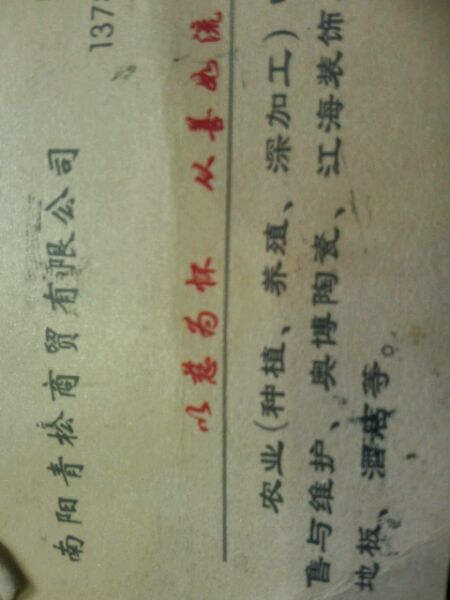 137
南阳青松商贸有限公司
以慈为怀 从善如流
农业(种植、养殖、深加工)
售与维护、奥博陶瓷、江海装饰
地板、酒店等。